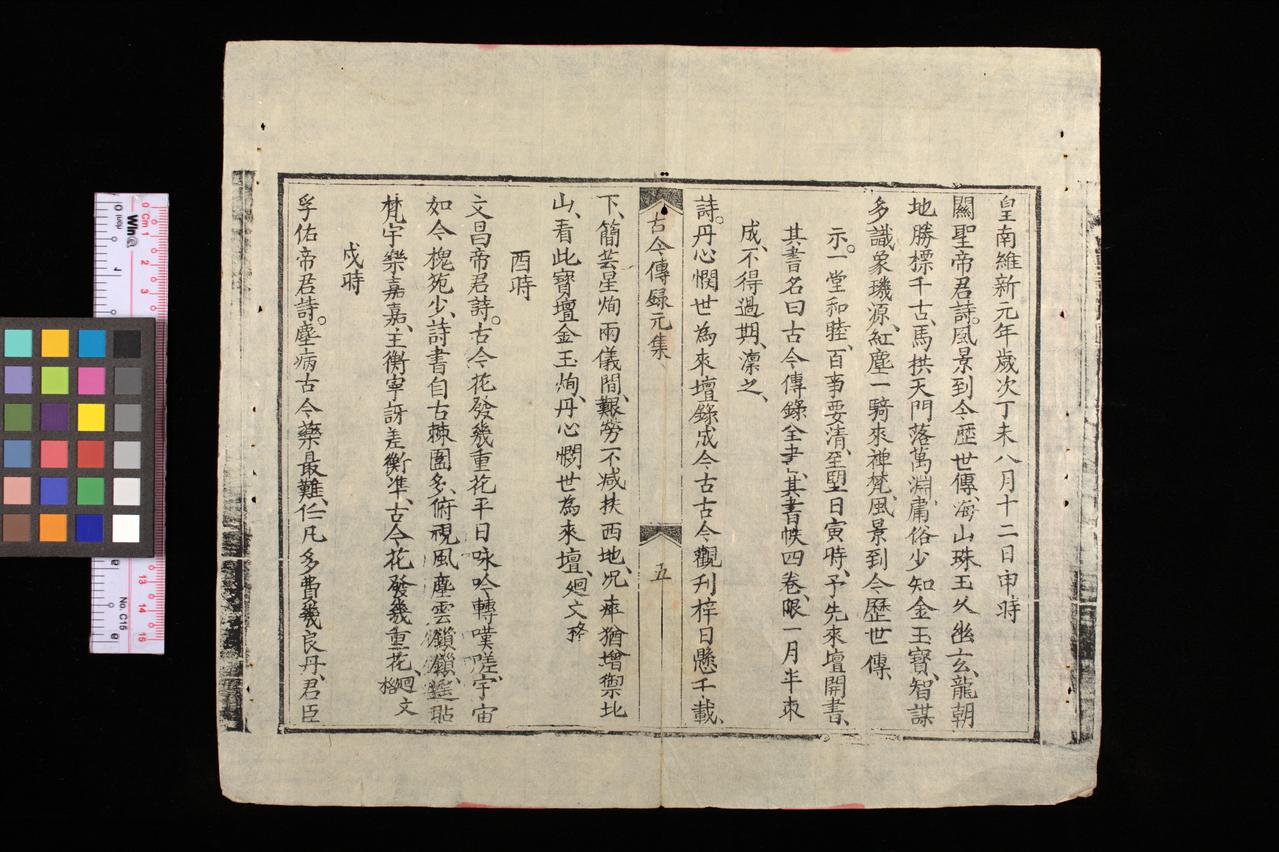 皇南維新元年歲次丁未八月十二日申時
關聖帝君詩。風景到今歷世傳、海山珠玉久幽玄、龍朝
地勝標千古、馬拱天門落萬淵、庸俗少知金玉寶、智謀
多識象璣源、紅塵一騎來禅梵、風景到今歷世傳、
示。一堂和睦、百事要清、至望日寅時、予先來壇開書、
其書名曰古今傳錄全書、其書帙四卷、限一月半朿
成、不得過期、凛之、
詩。丹心憫世為來壇、錄成今古古今觀、刋梓日懸千載、
古今傳録元集、
五
下、簡芸星炯兩儀間、艱勞不减扶西地、况瘁猶增禦北
山、看此寶壇金玉炯、丹心憫世為來壇、廻文格
酉時
文昌帝君詩。古今花發幾重花、平日咏吟轉嘆嗟、宇宙
如今槐苑少、詩書自古棘圍多、俯視風塵雲鎻鎻、遙跕
梵宇樂嘉嘉、主衡寧訝差衡凖、古今花發幾重花、廻文格
戍時
孚佑帝君詩。塵病古今藥最難、仁凡多費幾良丹、君臣
Win@
inch
Cm
0
1
2
3
13
14
15
No. C15